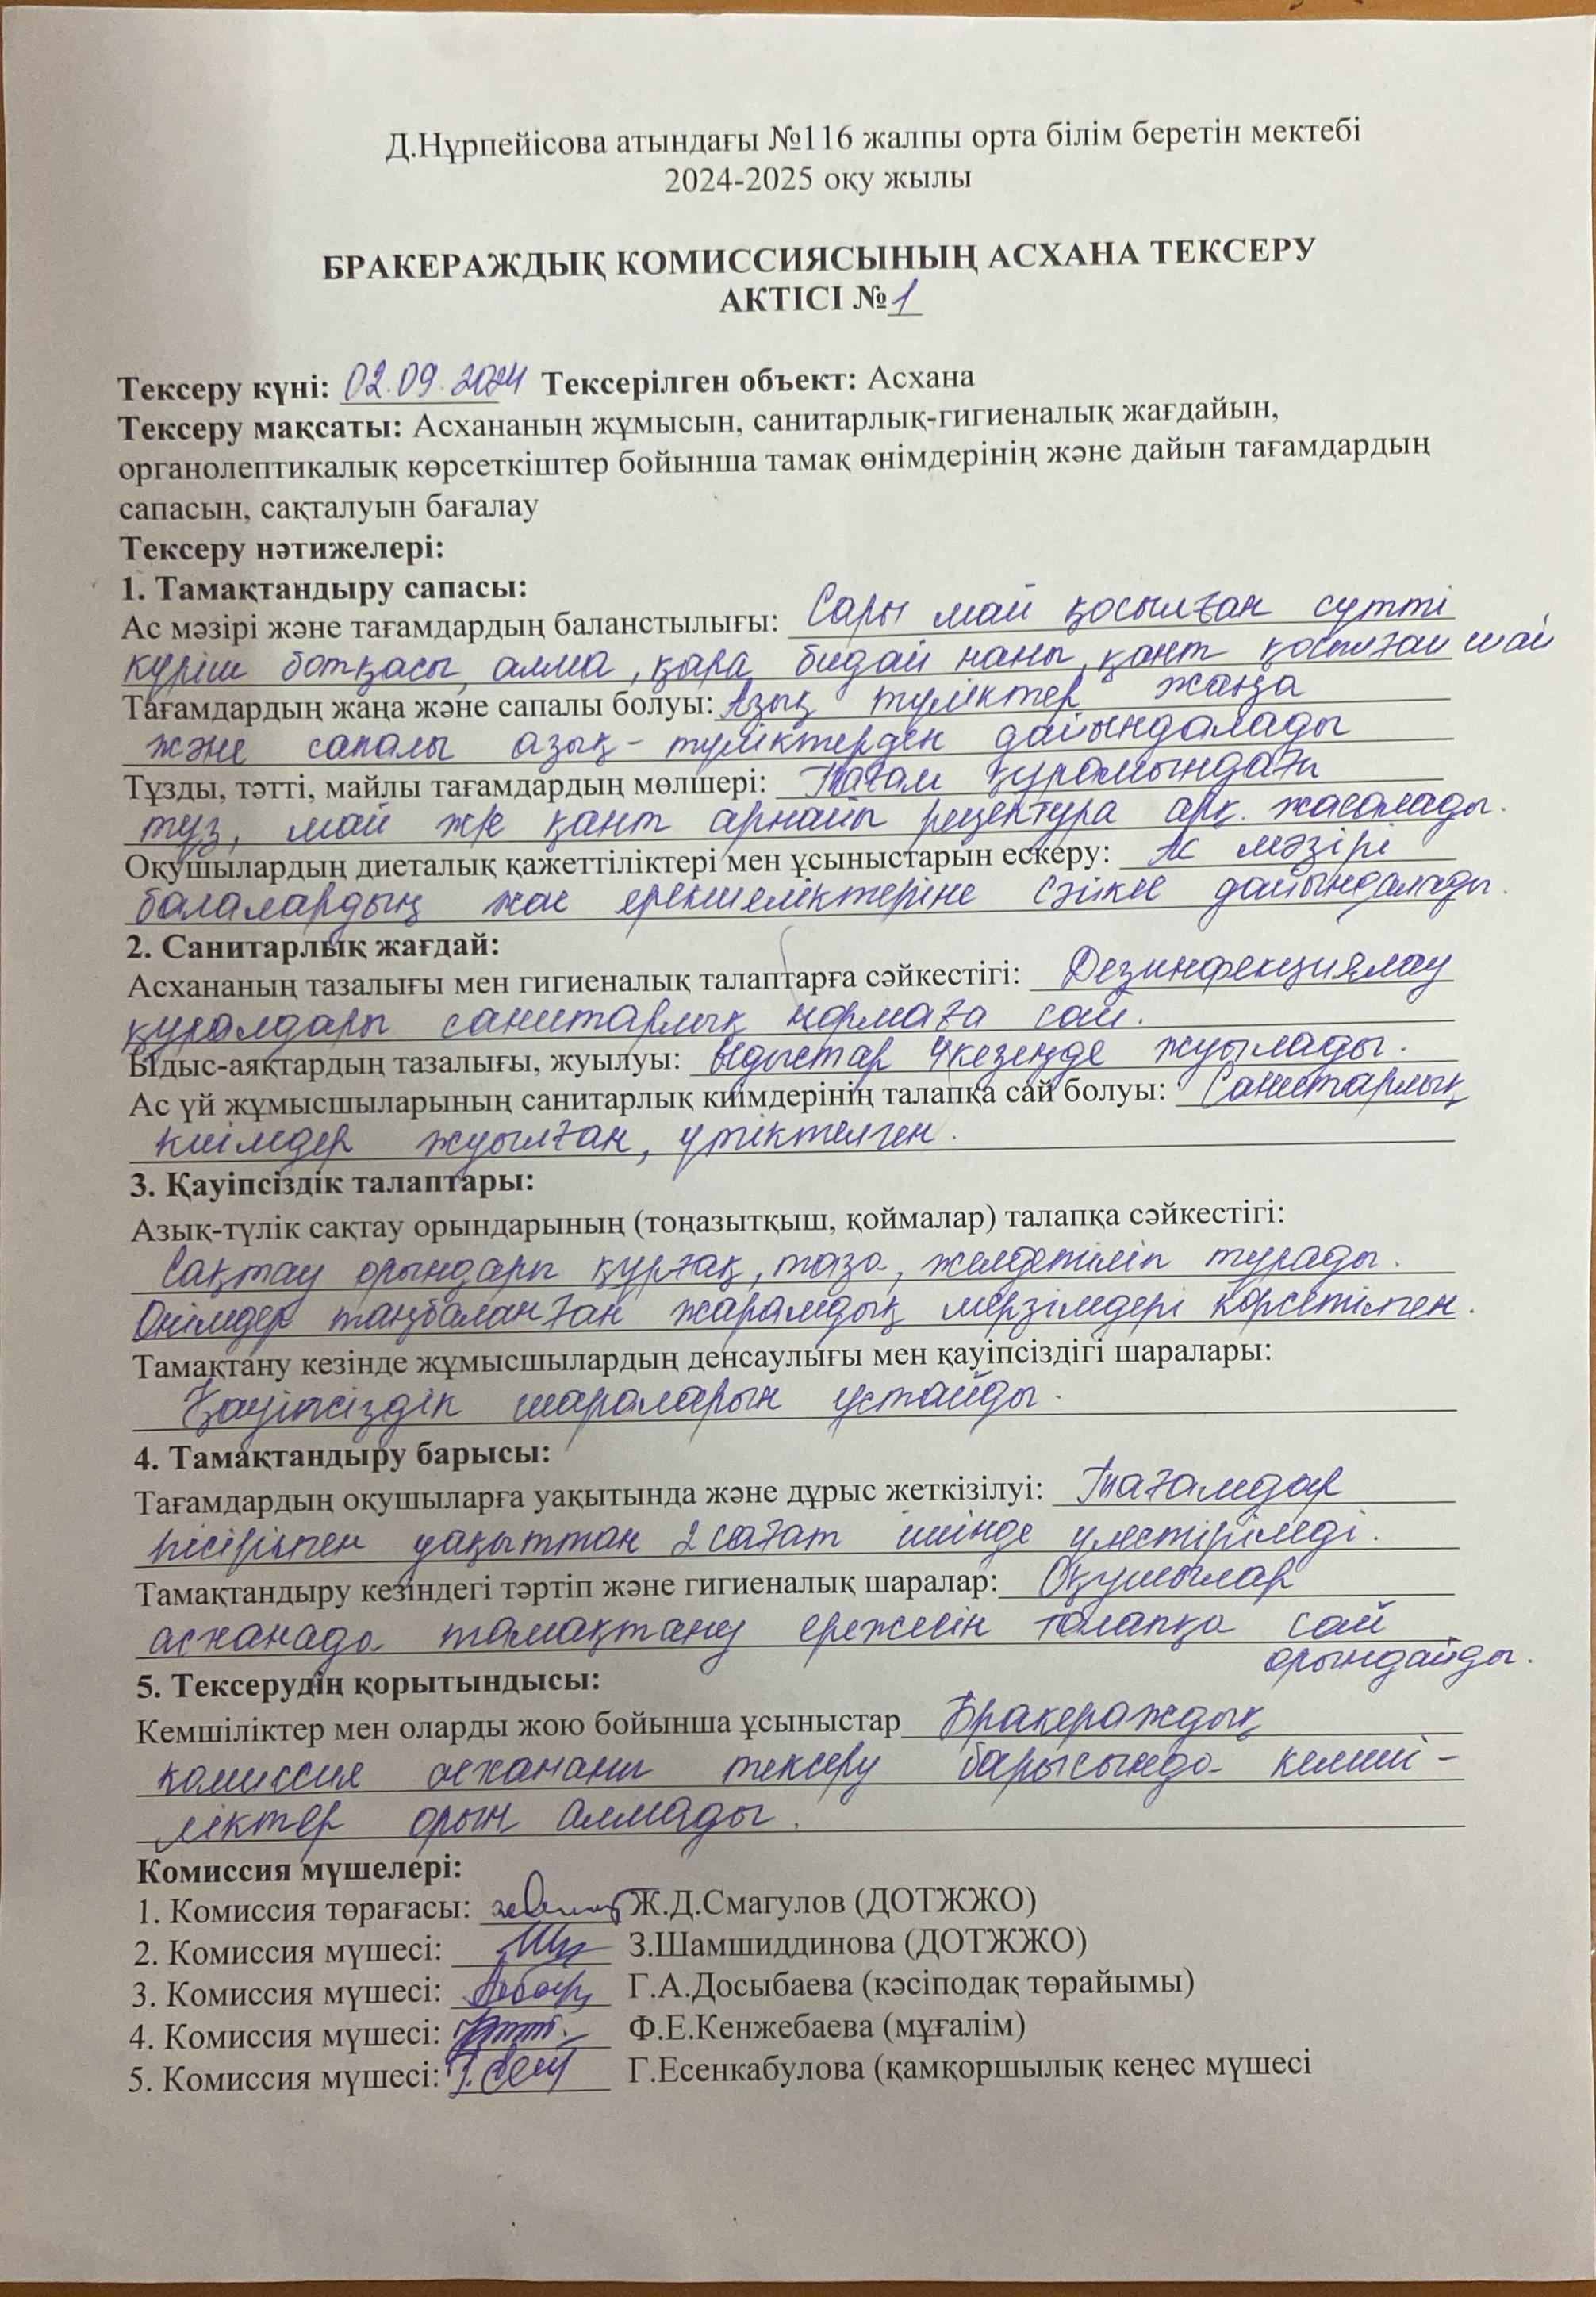 Д.Нұрпейісова атындағы №116 жалпы орта білім беретін мектебі
2024-2025 оқу жылы
БРАКЕРАЖДЫҚ КОМИССИЯСЫНЫҢ АСХАНА ТЕКСЕРУ
АКТІСІ №1
Тексеру күні: 02.09.2024 Тексерілген объект: Асхана
Тексеру мақсаты: Асхананың жұмысын, санитарлық-гигиеналық жағдайын,
органолептикалық көрсеткіштер бойынша тамақ өнімдерінің және дайын тағамдардың
сапасын, сақталуын бағалау
Тексеру нәтижелері:
1. Тамақтандыру сапасы:
Ас мәзірі және тағамдардың баланстылығы: Сары май қосылған сүтті
күріш ботқасы, алма, қара бидай наны, қант қосылған шай
Тағамдардың жаңа және сапалы болуы: Азық түліктер жаңа
және сапалы азық-түліктерден дайындалады
Тұзды, тәтті, майлы тағамдардың мөлшері: Тағам құрамындағы
тұз, май ж/е қант арнайы рецептура арқ. жасалады.
Оқушылардың диеталық қажеттіліктері мен ұсыныстарын ескеру: Ас мәзірі
балалардың жас ерекшеліктеріне сәйкес дайындалады.
2. Санитарлық жағдай:
Асхананың тазалығы мен гигиеналық талаптарға сәйкестігі: Дезинфекциялау
құралдары санитарлық нормаға сай.
Ыдыс-аяқтардың тазалығы, жуылуы: Ыдыстар 4 кезеңде жуылады.
Ас үй жұмысшыларының санитарлық киімдерінің талапқа сай болуы: Санитарлық
киімдер жуылған, үтіктелген.
3. Қауіпсіздік талаптары:
Азық-түлік сақтау орындарының (тоңазытқыш, қоймалар) талапқа сәйкестігі:
Сақтау орындары құрғақ, таза, желдетіліп тұрады.
Өнімдер таңбаланған жарамдық мерзімдері көрсетілген.
Тамақтану кезінде жұмысшылардың денсаулығы мен қауіпсіздігі шаралары:
Қауіпсіздік шараларын ұстайды.
4. Тамақтандыру барысы:
Тағамдардың оқушыларға уақытында және дұрыс жеткізілуі: Тағамдар
пісірілген уақыттан 2 сағат ішінде үлестіріледі.
Тамақтандыру кезіндегі тәртіп және гигиеналық шаралар: Оқушылар
асханада тамақтану ережесін талапқа сай
орындайды.
5. Тексерудің қорытындысы:
Кемшіліктер мен оларды жою бойынша ұсыныстар Бракераждық
комиссия асхананы тексеру барысында кемші-
ліктер орын алмады.
Комиссия мүшелері:
1. Комиссия төрағасы: Ж.Д.Смагулов (ДОТЖЖО)
2. Комиссия мүшесі: З.Шамшиддинова (ДОТЖЖО)
3. Комиссия мүшесі: Г.А.Досыбаева (кәсіподақ төрайымы)
4. Комиссия мүшесі: Ф.Е.Кенжебаева (мұғалім)
5. Комиссия мүшесі: Г.Есенкабулова (қамқоршылық кеңес мүшесі